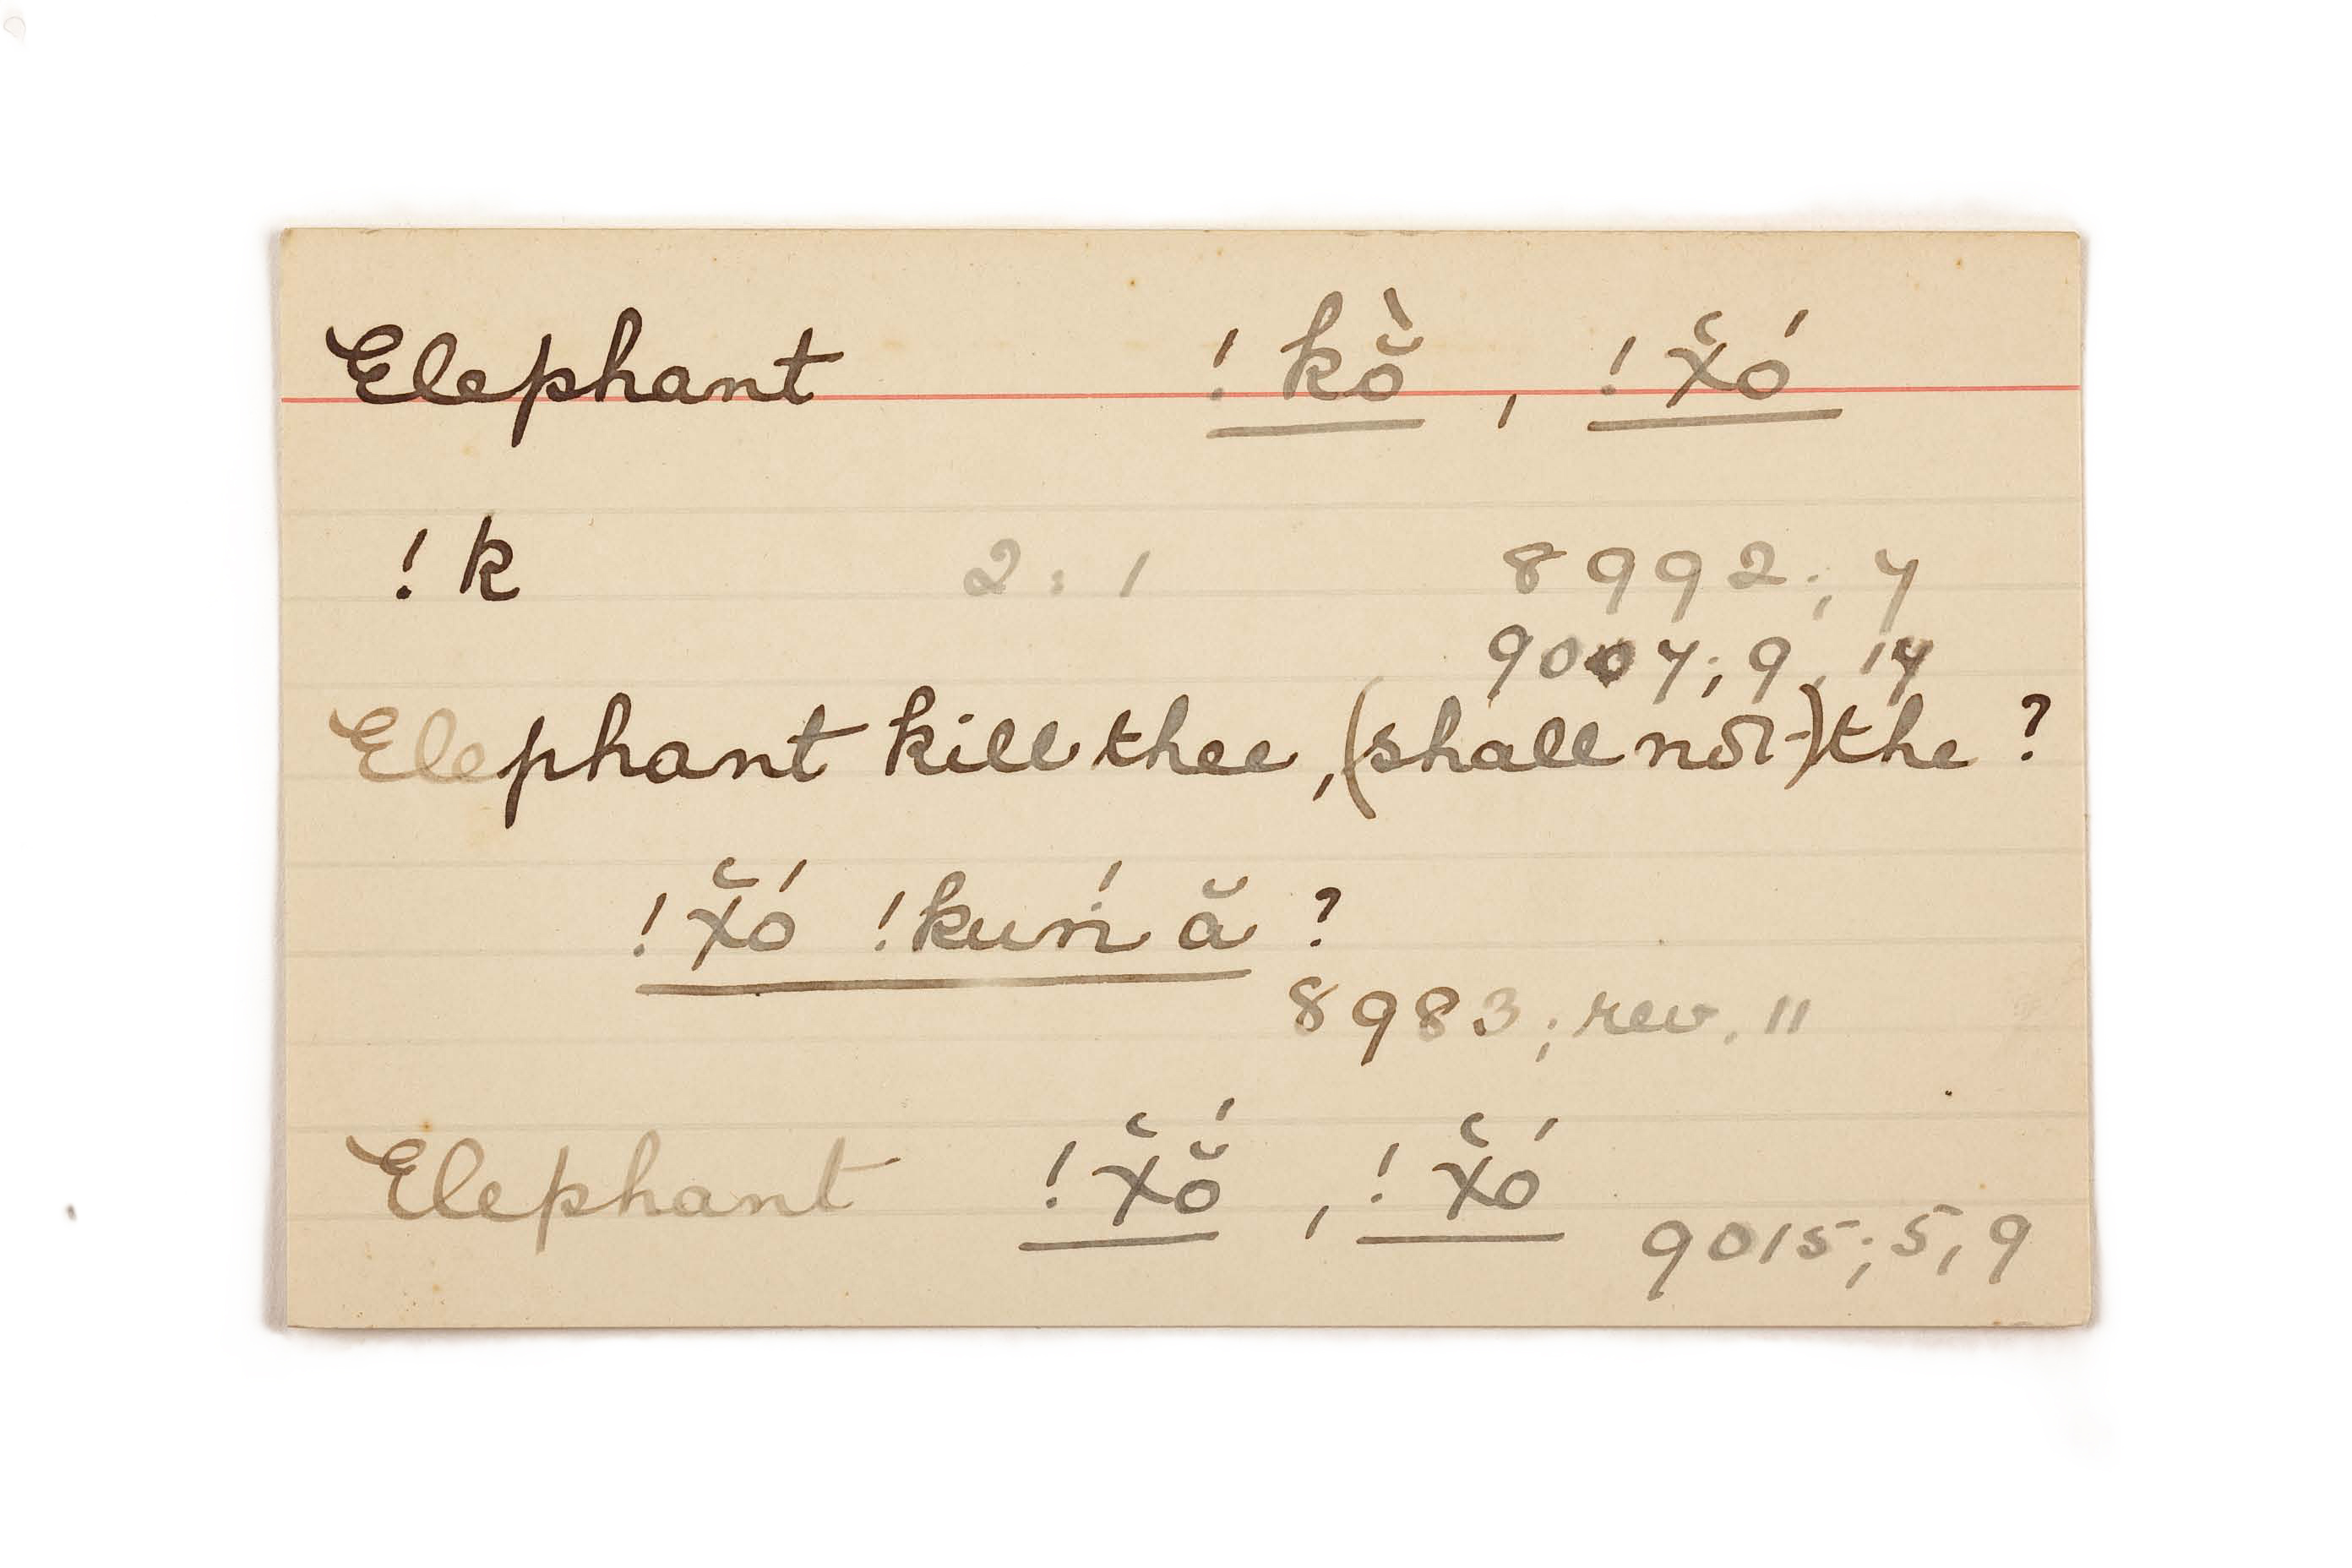 Elephant !kŏ̀, !χ̆ó
!k 2:1 8992; 7
9007; 9, 17
Elephant kill thee, (shall not) the ?
!χ̆ó !kurí ă ?
8983; rev. 11
Elephant !χ̆ŏ́, !χ̆ó
9015; 5, 9